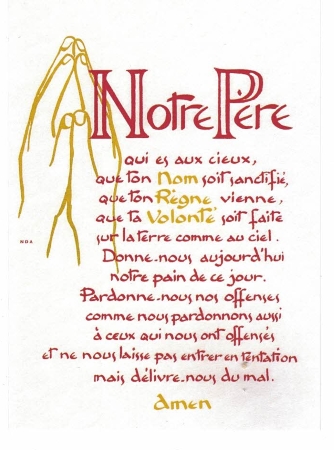 Notre Père
qui es aux cieux,
que ton Nom soit sanctifié,
que ton Règne vienne,
que ta Volonté soit faite
sur la terre comme au ciel.
Donne-nous aujourd'hui
notre pain de ce jour.
Pardonne-nous nos offenses
comme nous pardonnons aussi
à ceux qui nous ont offensés
et ne nous laisse pas entrer en tentation
mais délivre-nous du mal.
Amen
NDA